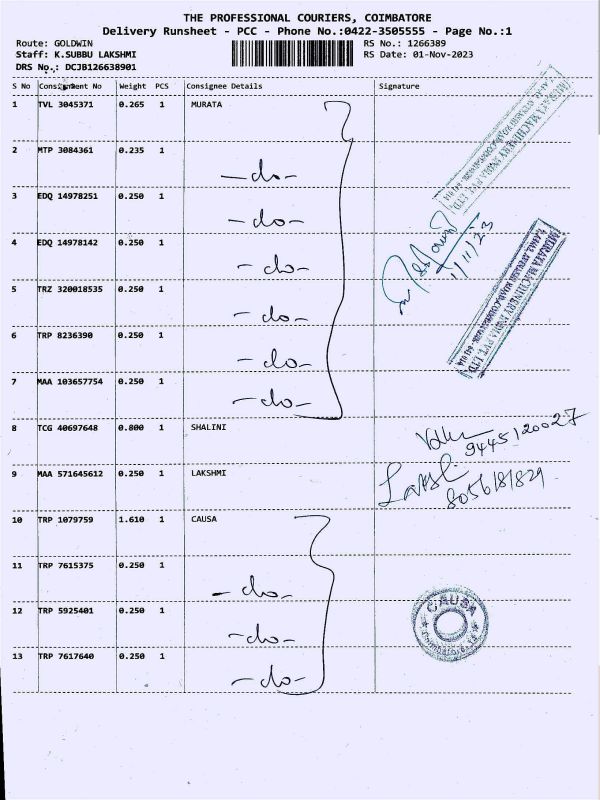 THE PROFESSIONAL COURIERS, COIMBATORE
Delivery Runsheet - PCC - Phone No.:0422-3505555 - Page No.:1
Route: GOLDWIN RS No.: 1266389
Staff: K.SUBBU LAKSHMI RS Date: 01-Nov-2023
DRS No.: DCJB126638901
S No Consignment No Weight PCS Consignee Details Signature
1 TVL 3045371 0.265 1 MURATA
2 MTP 3084361 0.235 1 -do-
3 EDQ 14978251 0.250 1 -do-
4 EDQ 14978142 0.250 1 -do-
1/11/23
5 TRZ 320018535 0.250 1 -do-
6 TRP 8236390 0.250 1 -do-
MURATA MACHINERY INDIA PVT. LTD.
7 MAA 103657754 0.250 1 -do-
8 TCG 40697648 0.800 1 SHALINI
9445120027
9 MAA 571645612 0.250 1 LAKSHMI
8056181829
10 TRP 1079759 1.610 1 CAUSA
11 TRP 7615375 0.250 1 -do-
12 TRP 5925401 0.250 1 -do-
CAUSA
13 TRP 7617640 0.250 1 -do-